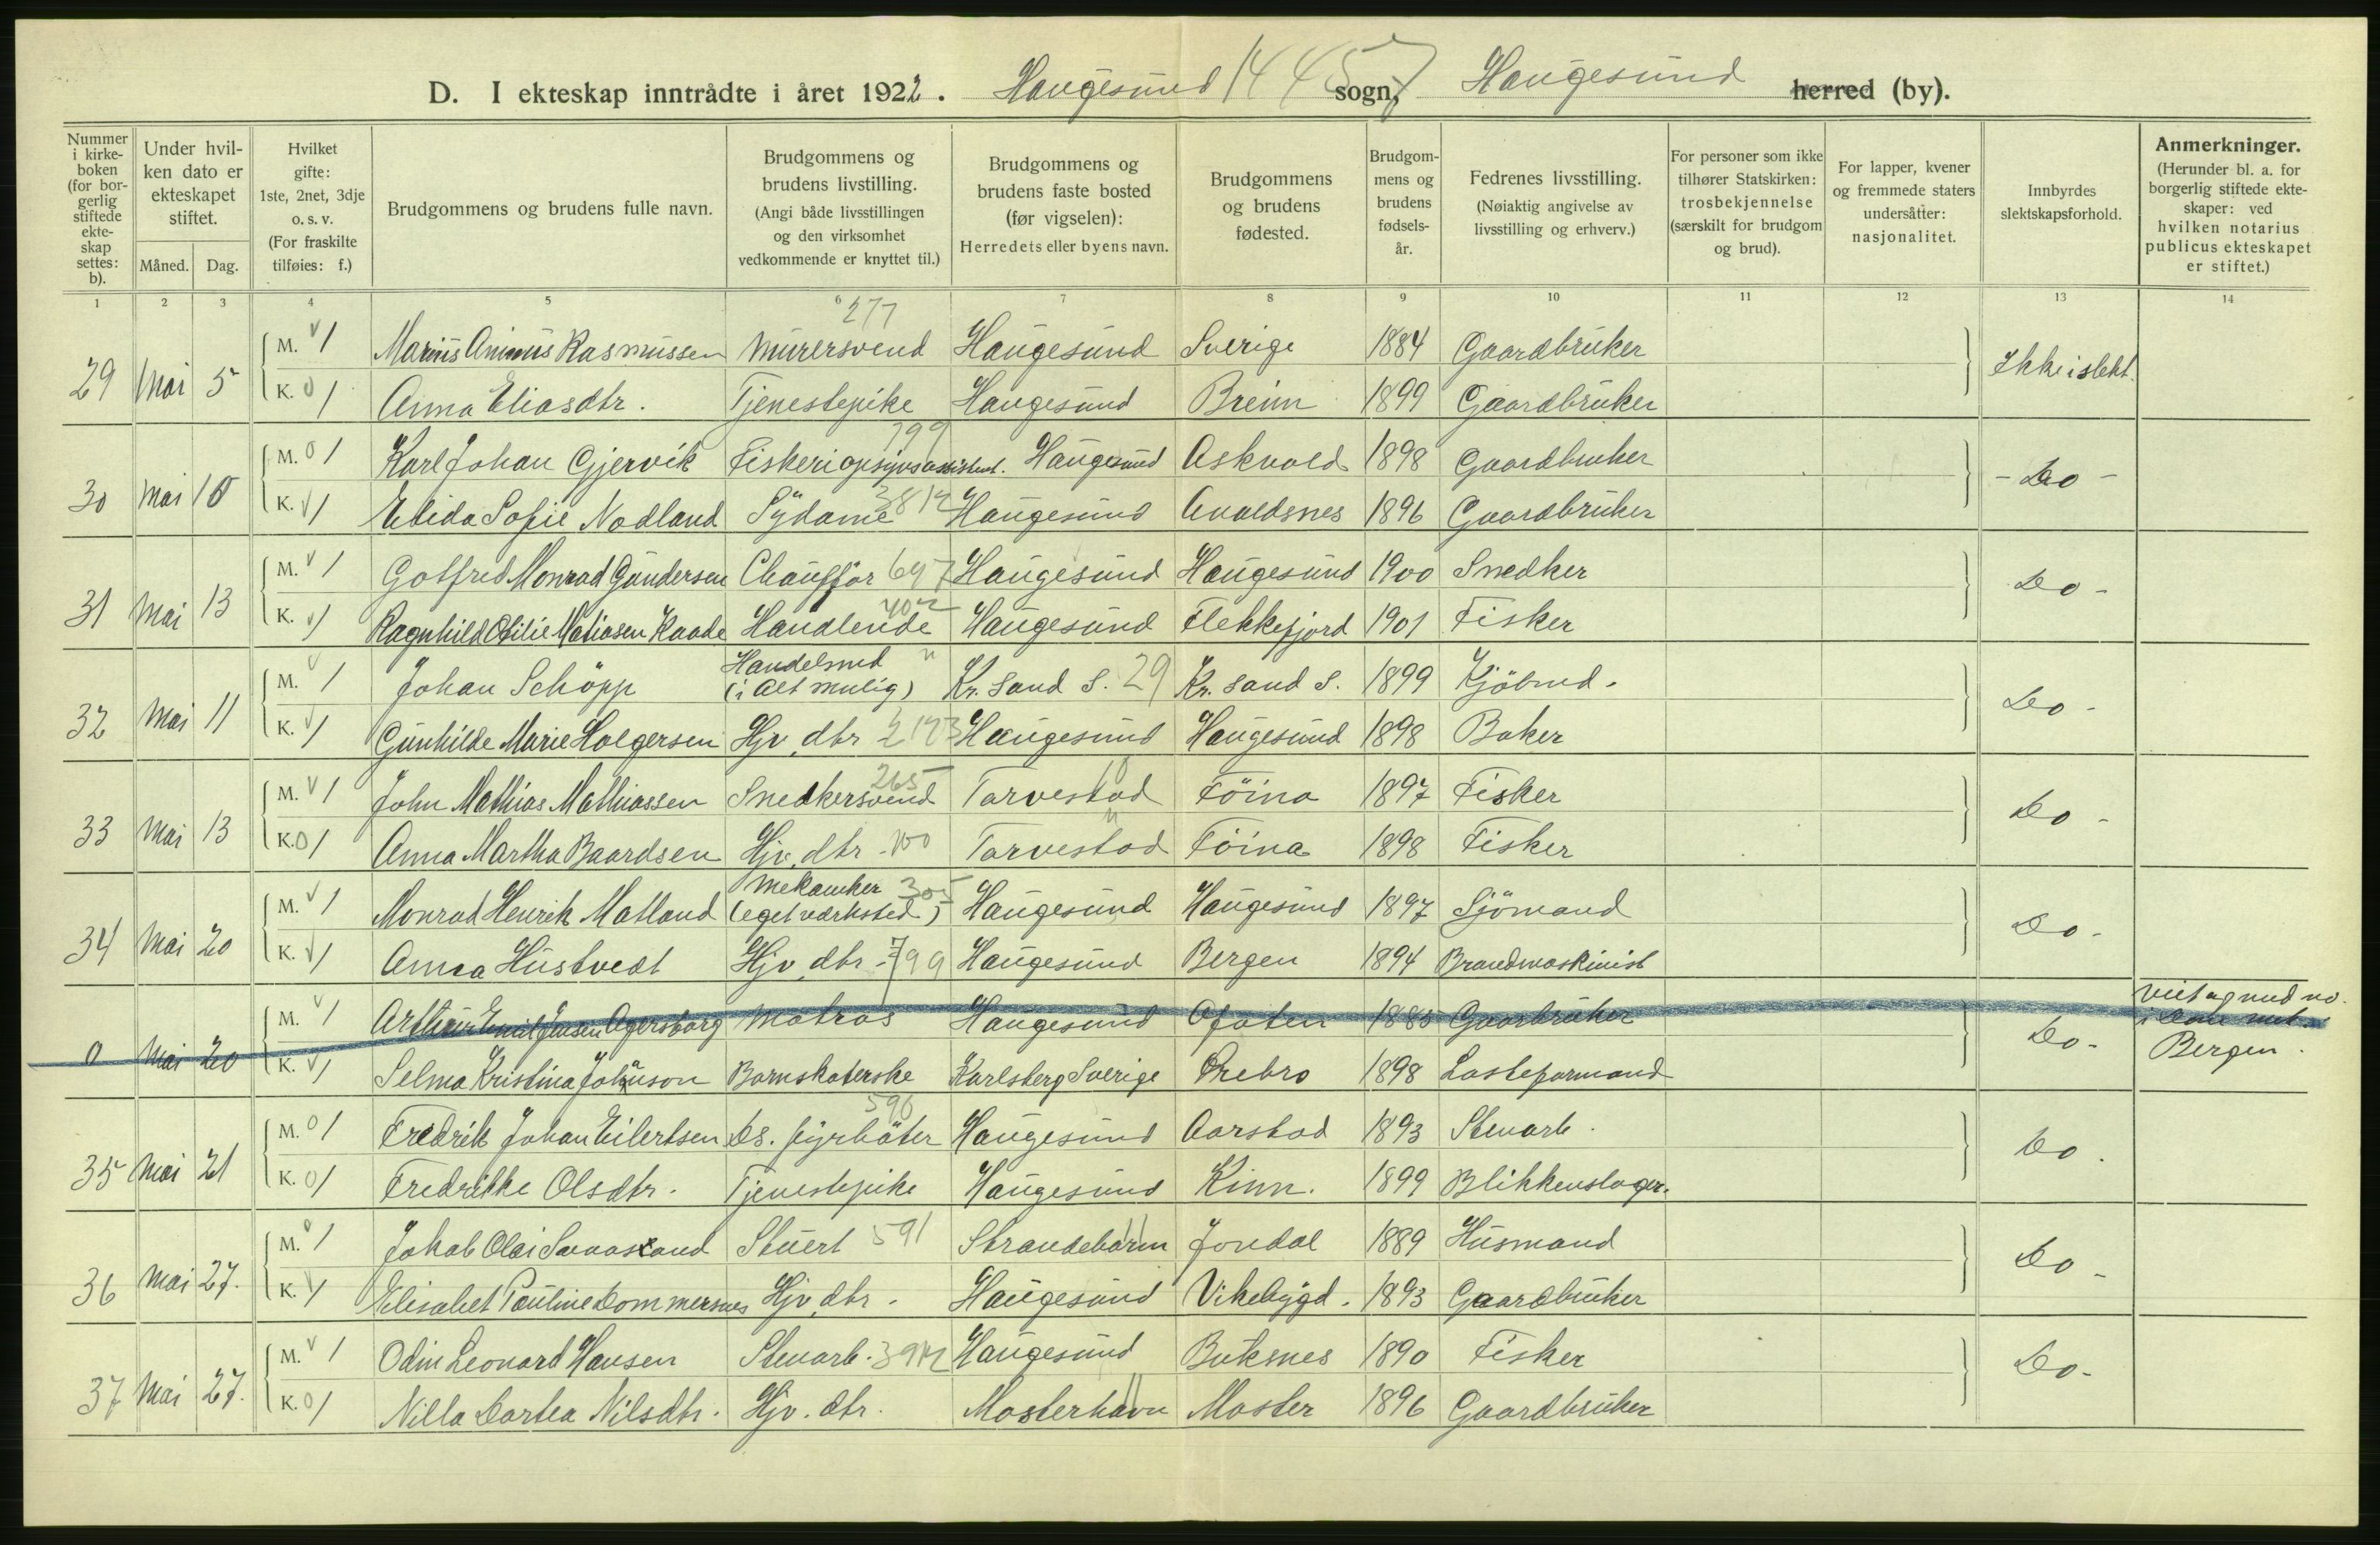 D. I ekteskap inntrådte i året 1922. Haugesund 14457 sogn, Haugesund herred (by).
Nummer i kirkeboken (for borgerlig stiftede ekteskap settes: b).
Under hvilken dato er ekteskapet stiftet.
Måned. Dag.
Hvilket gifte: 1ste, 2net, 3dje o. s. v. (For fraskilte tilføies: f.)
Brudgommens og brudens fulle navn.
Brudgommens og brudens livstilling. (Angi både livsstillingen og den virksomhet vedkommende er knyttet til.)
Brudgommens og brudens faste bosted (før vigselen): Herredets eller byens navn.
Brudgommens og brudens fødested.
Brudgommens og brudens fødselsår.
Fedrenes livsstilling. (Nøiaktig angivelse av livsstilling og erhverv.)
For personer som ikke tilhører Statskirken: trosbekjennelse (særskilt for brudgom og brud).
For lapper, kvener og fremmede staters undersåtter: nasjonalitet.
Innbyrdes slektskapsforhold.
Anmerkninger. (Herunder bl. a. for borgerlig stiftede ekteskaper: ved hvilken notarius publicus ekteskapet er stiftet.)
1 2 3 4 5 6 7 8 9 10 11 12 13 14
277
29 Mai 5 M. 1 Marius Animus Rasmussen Murersvend Haugesund Sverige 1884 Gaardbruker Ikke i slekt.
K. 0 1 Anna Eliasdtr. Tjenestepike Haugesund Breim 1899 Gaardbruker
799
30 Mai 10 M. 0 1 Karl Johan Gjervik Fiskeriopsynsassistent. Haugesund Askvold 1898 Gaardbruker - Do -
K. 1 Elida Sofie Nodland Sydame Haugesund Avaldsnes 1896 Gaardbruker
31 Mai 13 M. 1 Gotfred Monrad Gundersen Chauffør 697 Haugesund Haugesund 1900 Snedker Do -
K. 1 Ragnhild Otilie Matiasen Kaade Handlende Haugesund Flekkefjord 1901 Fisker
Handelsmd
32 Mai 11 M. 1 Johan Schöpp (i Alt mulig) Kr. sand S. 29 Kr. sand S. 1899 Kjöbmd. Do -
K. 1 Gunhilde Marie Holgersen Hjv. dtr Haugesund Haugesund 1898 Baker
265
33 Mai 13 M. 1 John Mathias Mathiassen Snedkersvend Torvestad Föina 1897 Fisker Do -
K. 0 1 Anna Martha Baardsen Hjv. dtr - 100 Torvestad Föina 1898 Fisker
Mekaniker 305
34 Mai 20 M. 1 Monrad Henrik Matland (eget verksted) Haugesund Haugesund 1897 Sjömand Do -
K. 1 Anna Hustvedt Hjv. dtr - 799 Haugesund Bergen 1894 Brandmaskinist
0 Mai 20 M. 1 Arthur Emil Jensen Agersborg Matros Haugesund Ofoten 1885 Gaarbruker Do -
K. 1 Selma Kristina Johnson Barnskøterske Karlsberg Sverige Ørebro 1898 Lasteformand Bergen.
590
35 Mai 21 M. 0 1 Fredrik Johan Eilertsen Ds. fyrböter Haugesund Aarstad 1893 Stenarb. Do.
K. 0 1 Fredrikke Olsdtr. Tjenestepike Haugesund Kinn. 1899 Blikkenslager.
36 Mai 27. M. 0 1 Jakob Olai Stuert 591 Strandebarm Jondal 1889 Husmand Do -
K. 1 Elisabet Pauline Dommersnes Hjv. dtr. Haugesund Vikebygd. 1893 Gaardbruker
37 Mai 27. M. 1 Odin Leonard Hansen Stenarb. Haugesund Buksnes 1890 Fisker Do -
K. 0 1 Nilla Dortea Nilsdtr. Hjv. dtr. Mosterhavn Moster 1896 Gaardbruker